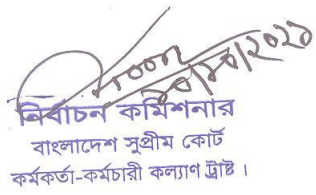 নির্বাচন কমিশনার
বাংলাদেশ সুপ্রীম কোর্ট
কর্মকর্তা-কর্মচারী কল্যাণ ট্রাষ্ট ।